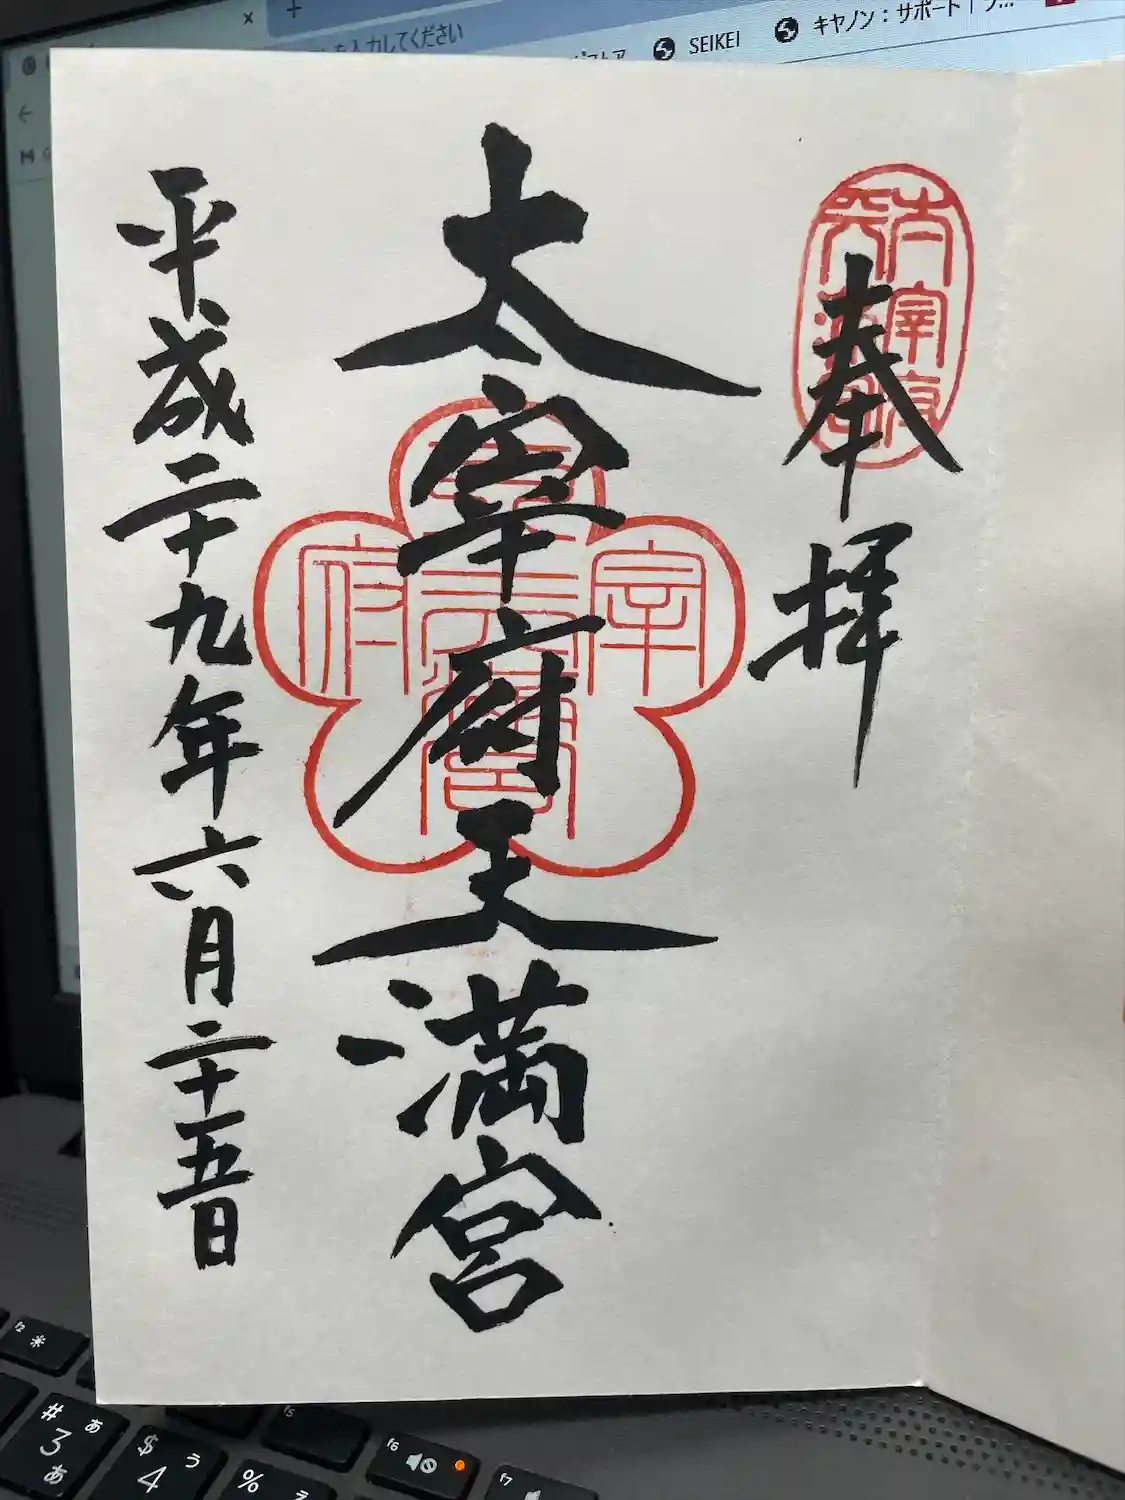 奉拝
太宰府天満宮
平成二十九年六月二十五日
太宰府天満宮
SEIKEI
キヤノン：サポート
を入力してください
f2
# あ
3 あ
$ う
4
%
f5
f6
f7